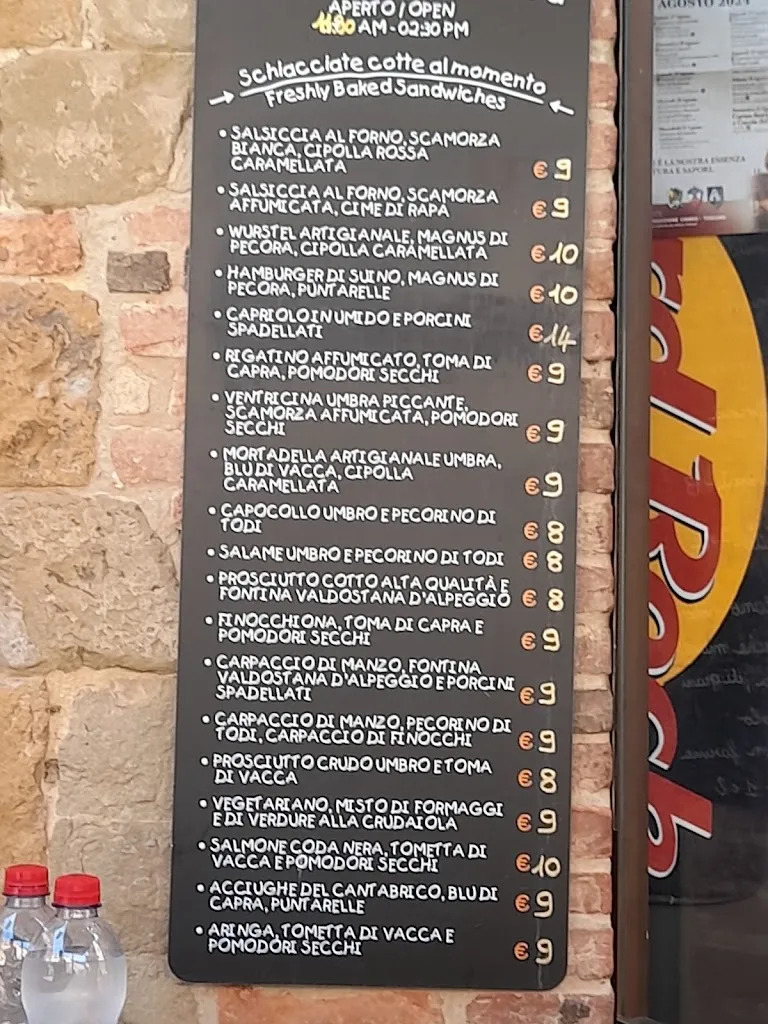 APERTO / OPEN
11:30 AM - 02:30 PM
Schiacciate cotte al momento
Freshly Baked Sandwiches
• SALSICCIA AL FORNO, SCAMORZA
BIANCA, CIPOLLA ROSSA
CARAMELLATA € 9
• SALSICCIA AL FORNO, SCAMORZA
AFFUMICATA, CIME DI RAPA € 9
• WURSTEL ARTIGIANALE, MAGNUS DI
PECORA, CIPOLLA CARAMELLATA € 10
• HAMBURGER DI SUINO, MAGNUS DI
PECORA, PUNTARELLE € 10
• CAPRIOLO IN UMIDO E PORCINI
SPADELLATI € 14
• RIGATINO AFFUMICATO, TOMA DI
CAPRA, POMODORI SECCHI € 9
• VENTRICINA UMBRA PICCANTE,
SCAMORZA AFFUMICATA, POMODORI
SECCHI € 9
• MORTADELLA ARTIGIANALE UMBRA,
BLU DI VACCA, CIPOLLA
CARAMELLATA € 9
• CAPOCOLLO UMBRO E PECORINO DI
TODI € 8
• SALAME UMBRO E PECORINO DI TODI € 8
• PROSCIUTTO COTTO ALTA QUALITÀ E
FONTINA VALDOSTANA D'ALPEGGIO € 8
• FINOCCHIONA, TOMA DI CAPRA E
POMODORI SECCHI € 9
• CARPACCIO DI MANZO, FONTINA
VALDOSTANA D'ALPEGGIO E PORCINI
SPADELLATI € 9
• CARPACCIO DI MANZO, PECORINO DI
TODI, CARPACCIO DI FINOCCHI € 9
• PROSCIUTTO CRUDO UMBRO E TOMA
DI VACCA € 8
• VEGETARIANO, MISTO DI FORMAGGI
E DI VERDURE ALLA CRUDAIOLA € 9
• SALMONE CODA NERA, TOMETTA DI
VACCA E POMODORI SECCHI € 10
• ACCIUGHE DEL CANTABRICO, BLU DI
CAPRA, PUNTARELLE € 9
• ARINGA, TOMETTA DI VACCA E
POMODORI SECCHI € 9
AGOSTO 2024
È LA NOSTRA ESSENZA
E SAPORI.